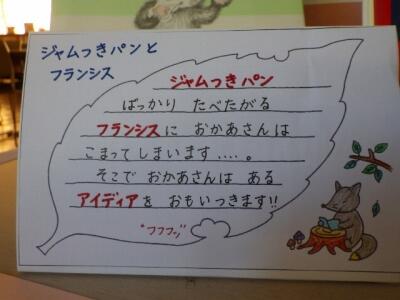 ジャムつきパンと
フランシス
ジャムつきパン
ばっかり たべたがる
フランシスに おかあさんは
こまってしまいます....。
そこで おかあさんは ある
アイディアを おもいつきます!!
"フフフッ"